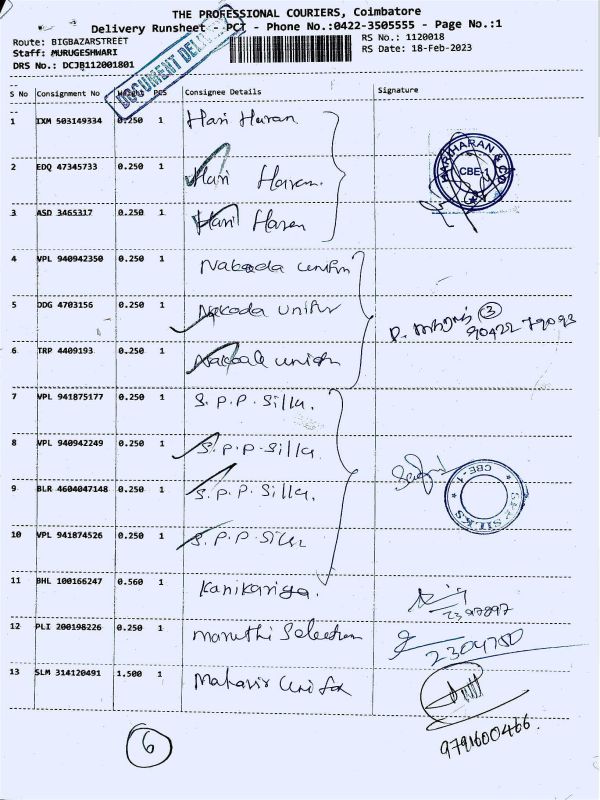 THE PROFESSIONAL COURIERS, Coimbatore
Delivery Runsheet - PCT - Phone No.:0422-3505555 - Page No.:1
Route: BIGBAZARSTREET
RS No.: 1120018
Staff: MURUGESHWARI
RS Date: 18-Feb-2023
DRS No.: DCJB112001801
DOCUMENT DELIVERY
S No Consignment No Weight PCS Consignee Details Signature
1 IXM 503149334 0.250 1 Hari Haran
2 EDQ 47345733 0.250 1 Hari Haran
3 ASD 3465317 0.250 1 Hari Haran
HARIHARAN & CO
CBE-1
4 VPL 940942350 0.250 1 Nakoda unifm
5 DDG 4703156 0.250 1 Nakoda unifm
6 TRP 4409193 0.250 1 Nakoda unifm
3
90422 79093
7 VPL 941875177 0.250 1 S.P.P. Silks.
8 VPL 940942249 0.250 1 S.P.P. Silks.
9 BLR 4604047148 0.250 1 S.P.P. Silks.
CBE-1
SILKS
10 VPL 941874526 0.250 1 S.P.P. Silks
11 BHL 100166247 0.560 1 Kanikariya.
2397897
12 PLI 200198226 0.250 1 Maruthi Selection
2304750
13 SLM 314120491 1.500 1 Mahavir Unifox
9791600466.
6